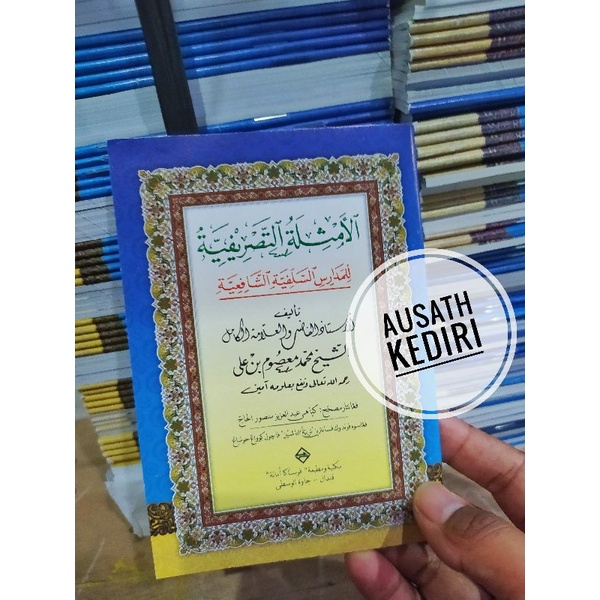 الأَمْثِلَةُ التَّصْرِيْفِيَّةُ
لِلْمَدَارِسِ السَّلَفِيَّةِ الشَّافِعِيَّةِ
تأليف
الأستاذ الفاضل والعلامة الكامل
الشيخ محمد معصوم بن علي
رحمه الله تعالى ونفع بعلومه آمين
عبد العزيز منصور الحاج
مكتبة ومطبعة
جاوة الوسطى
AUSATH
KEDIRI